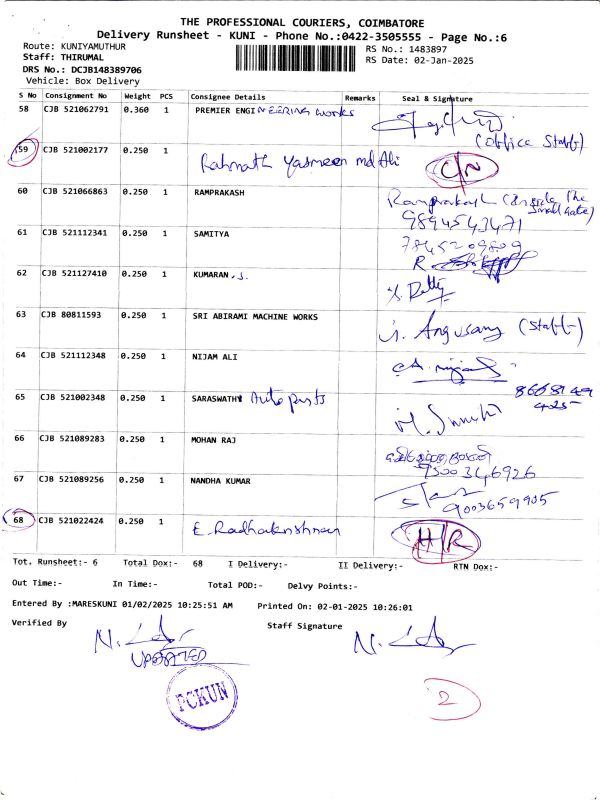 THE PROFESSIONAL COURIERS, COIMBATORE
Delivery Runsheet - KUNI - Phone No.:0422-3505555 - Page No.:6
Route: KUNIYAMUTHUR RS No.: 1483897
Staff: THIRUMAL RS Date: 02-Jan-2025
DRS No.: DCJB148389706
Vehicle: Box Delivery
S No Consignment No Weight PCS Consignee Details Remarks Seal & Signature
58 CJB 521062791 0.360 1 PREMIER ENGINEERING WORKS
(Office Staff)
59 CJB 521002177 0.250 1 Rahmath Yasmeen md Ali C/N
60 CJB 521066863 0.250 1 RAMPRAKASH Ramprakash (Inside The Small gate)
9894543471
61 CJB 521112341 0.250 1 SAMITYA 7845209809
62 CJB 521127410 0.250 1 KUMARAN .S.
63 CJB 80811593 0.250 1 SRI ABIRAMI MACHINE WORKS (Staff)
64 CJB 521112348 0.250 1 NIJAM ALI
65 CJB 521002348 0.250 1 SARASWATHY Auto parts 8668149
4025
66 CJB 521089283 0.250 1 MOHAN RAJ
9500346926
67 CJB 521089256 0.250 1 NANDHA KUMAR 9003659905
68 CJB 521022424 0.250 1 E. Radhakrishnan H/R
Tot. Runsheet:- 6 Total Dox:- 68 I Delivery:- II Delivery:- RTN Dox:-
Out Time:- In Time:- Total POD:- Delvy Points:-
Entered By :MARESKUNI 01/02/2025 10:25:51 AM Printed On: 02-01-2025 10:26:01
Verified By Staff Signature
UPDATED
PCKUN
2